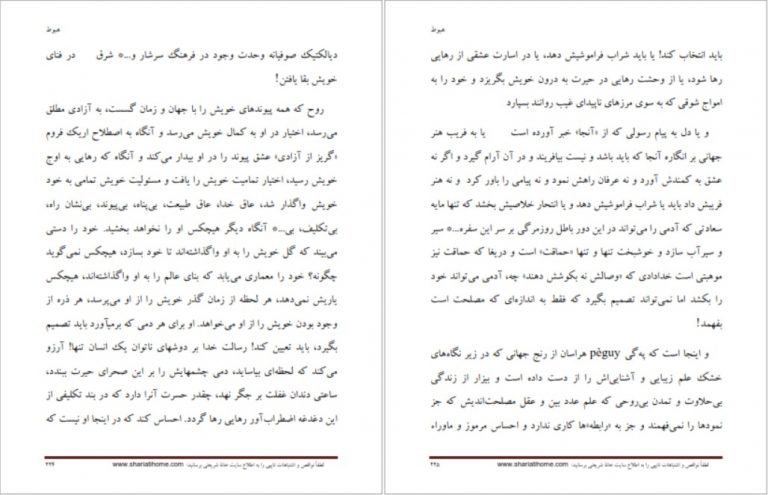 هبوط
دیالکتیک صوفیانه وحدت وجود در فرهنگ سرشار و...* شرق در فنای
خویش بقا یافتن!
روح که همه پیوندهای خویش را با جهان و زمان گسست، به آزادی مطلق
می‌رسد، اختیار در او به کمال خویش می‌رسد و آنگاه به اصطلاح اریک فروم
«گریز از آزادی» عشق پیوند را در او بیدار می‌کند و آنگاه که رهایی به اوج
خویش رسید، اختیار تمامیت خویش را یافت و مسئولیت خویش تمامی به خود
خویش واگذار شد، عاق خدا، عاق طبیعت، بی‌پناه، بی‌پیوند، بی‌نشان راه،
بی‌تکلیف، بی...* آنگاه دیگر هیچکس او را نخواهد بخشید. خود را دستی
می‌بیند که گل خویش را به او واگذاشته‌اند تا خود بسازد، هیچکس نمی‌گوید
چگونه؟ خود را معماری می‌یابد که بنای عالم را به او واگذاشته‌اند، هیچکس
یاریش نمی‌دهد، هر لحظه از زمان گذر خویش را از او می‌پرسد، هر ذره از
وجود بودن خویش را از او می‌خواهد. او برای هر دمی که برمیآورد باید تصمیم
بگیرد، باید تعیین کند! رسالت خدا بر دوشهای ناتوان یک انسان تنها! آرزو
می‌کند که لحظه‌ای بیاساید، دمی چشمهایش را بر این صحرای حیرت ببندد،
ساعتی دندان غفلت بر جگر نهد، چقدر حسرت آنرا دارد که در بند تکلیفی از
این دغدغه اضطراب‌آور رهایی رها گردد. احساس کند که در اینجا او نیست که
لطفاً نواقص و اشتباهات تایپی را به اطلاع سایت خانهٔ شریعتی برسانید: www.shariatihome.com ۲۲۴
هبوط
باید انتخاب کند! یا باید شراب فراموشیش دهد، یا در اسارت عشقی از رهایی
رها شود، یا از وحشت رهایی در حیرت به درون خویش بگریزد و خود را به
امواج شوقی که به سوی مرزهای ناپیدای غیب روانند بسپارد
و یا دل به پیام رسولی که از «آنجا» خبر آورده است یا به فریب هنر
جهانی بر انگاره آنجا که باید باشد و نیست بیافریند و در آن آرام گیرد و اگر نه
عشق به کمندش آورد و نه عرفان راهش نمود و نه پیامی را باور کرد و نه هنر
فریبش داد باید یا شراب فراموشیش دهد و یا انتحار خلاصیش بخشد که تنها مایه
سعادتی که آدمی را می‌تواند در این دور باطل روزمرگی بر سر این سفره...* سیر
و سیرآب سازد و خوشبخت تنها و تنها «حماقت» است و دریغا که حماقت نیز
موهبتی است خدادادی که «وصالش نه بکوشش دهند» چه، آدمی می‌تواند خود
را بکشد اما نمی‌تواند تصمیم بگیرد که فقط به اندازه‌ای که مصلحت است
بفهمد!
و اینجا است که په‌گی pèguy هراسان از رنج جهانی که در زیر نگاه‌های
خشک علم زیبایی و آشنایی‌اش را از دست داده است و بیزار از زندگی
بی‌حلاوت و تمدن بی‌روحی که علم عدد بین و عقل مصلحت‌اندیش که جز
نمودها را نمی‌فهمند و جز به «رابطه»ها کاری ندارد و احساس مرموز و ماوراء
لطفاً نواقص و اشتباهات تایپی را به اطلاع سایت خانهٔ شریعتی برسانید: www.shariatihome.com ۲۲۵